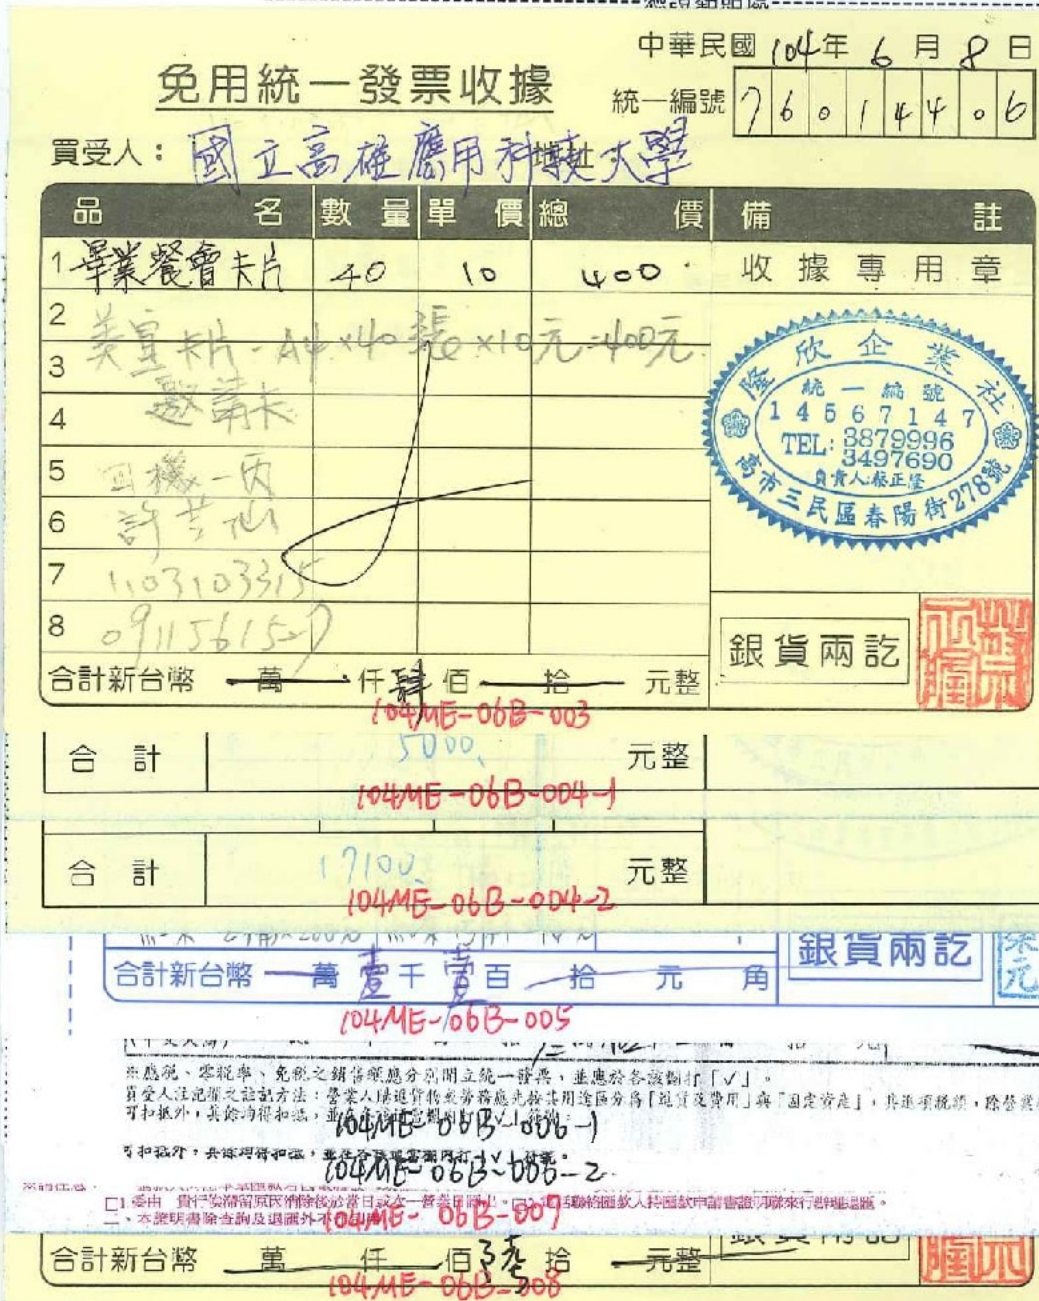 憑證黏貼處
中華民國 104年 6 月 8 日
免用統一發票收據
統一編號 76014406
買受人： 國立高雄應用科技大學 地址
品名 數量 單價 總價 備註
1 畢業餐會卡片 40 10 400 收據專用章
2 美宣卡片-A4×40張×10元=400元
3 邀請卡
4
5 四機一丙
6
7 1103103315
8 0911561527
隆欣企業社
統一編號
14567147
TEL: 3879996
3497690
負責人:蔡正隆
高市三民區春陽街278號
銀貨兩訖
合計新台幣 萬 仟肆佰 拾 元整
104ME-06B-003
合計 5000 元整
104ME-06B-004-1
合計 17100 元整
104ME-06B-004-2
銀貨兩訖
合計新台幣 萬壹千壹百 拾 元 角
104ME-06B-005
※應稅、零稅率、免稅之銷售額應分別開立統一發票，並應於各該欄打「✓」。
買受人註記欄之註記方法：營業人購進貨物或勞務應先按其用途區分為「進貨及費用」與「固定資產」，其進項稅額，除營業
可扣抵外，其餘均得扣抵，並
104ME-06B-006-1
可扣抵外，其餘均得扣抵，並在各該適當欄內打「✓」符號。
104ME-06B-006-2
104ME-06B-007
二、本證明書除查詢及退匯外不
合計新台幣 萬 仟 佰 拾 元整 銀貨兩訖
104ME-06B-008